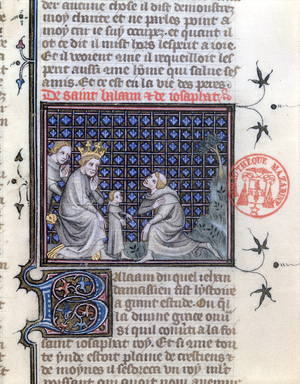 der aucune chose il luist demonstrer
moy charite et ne parles point a
moy car ie suy corrpez. et quant il
ot ce dit il mist hors lesperit a ioie.
Et il veoient .i. me il recueilloit les
perit aussi .i. me home qui salue ses
amis. Et ce est en la vie des peres.
De saint balaam et de iosaphat.
BIBLIOTHÈQUE MAZARINE
Balaam du quel iehan
damascien fist lystoire
a grant estude. On q̄
la divine grace ouu
si quil conuerti a la foi
saint iosaphat roy. Et si .i. me tou
te ynde estoit plaine de crestiens et
de moynes il sesdreca vn roy mlt
puissant qui auoit nom auenir